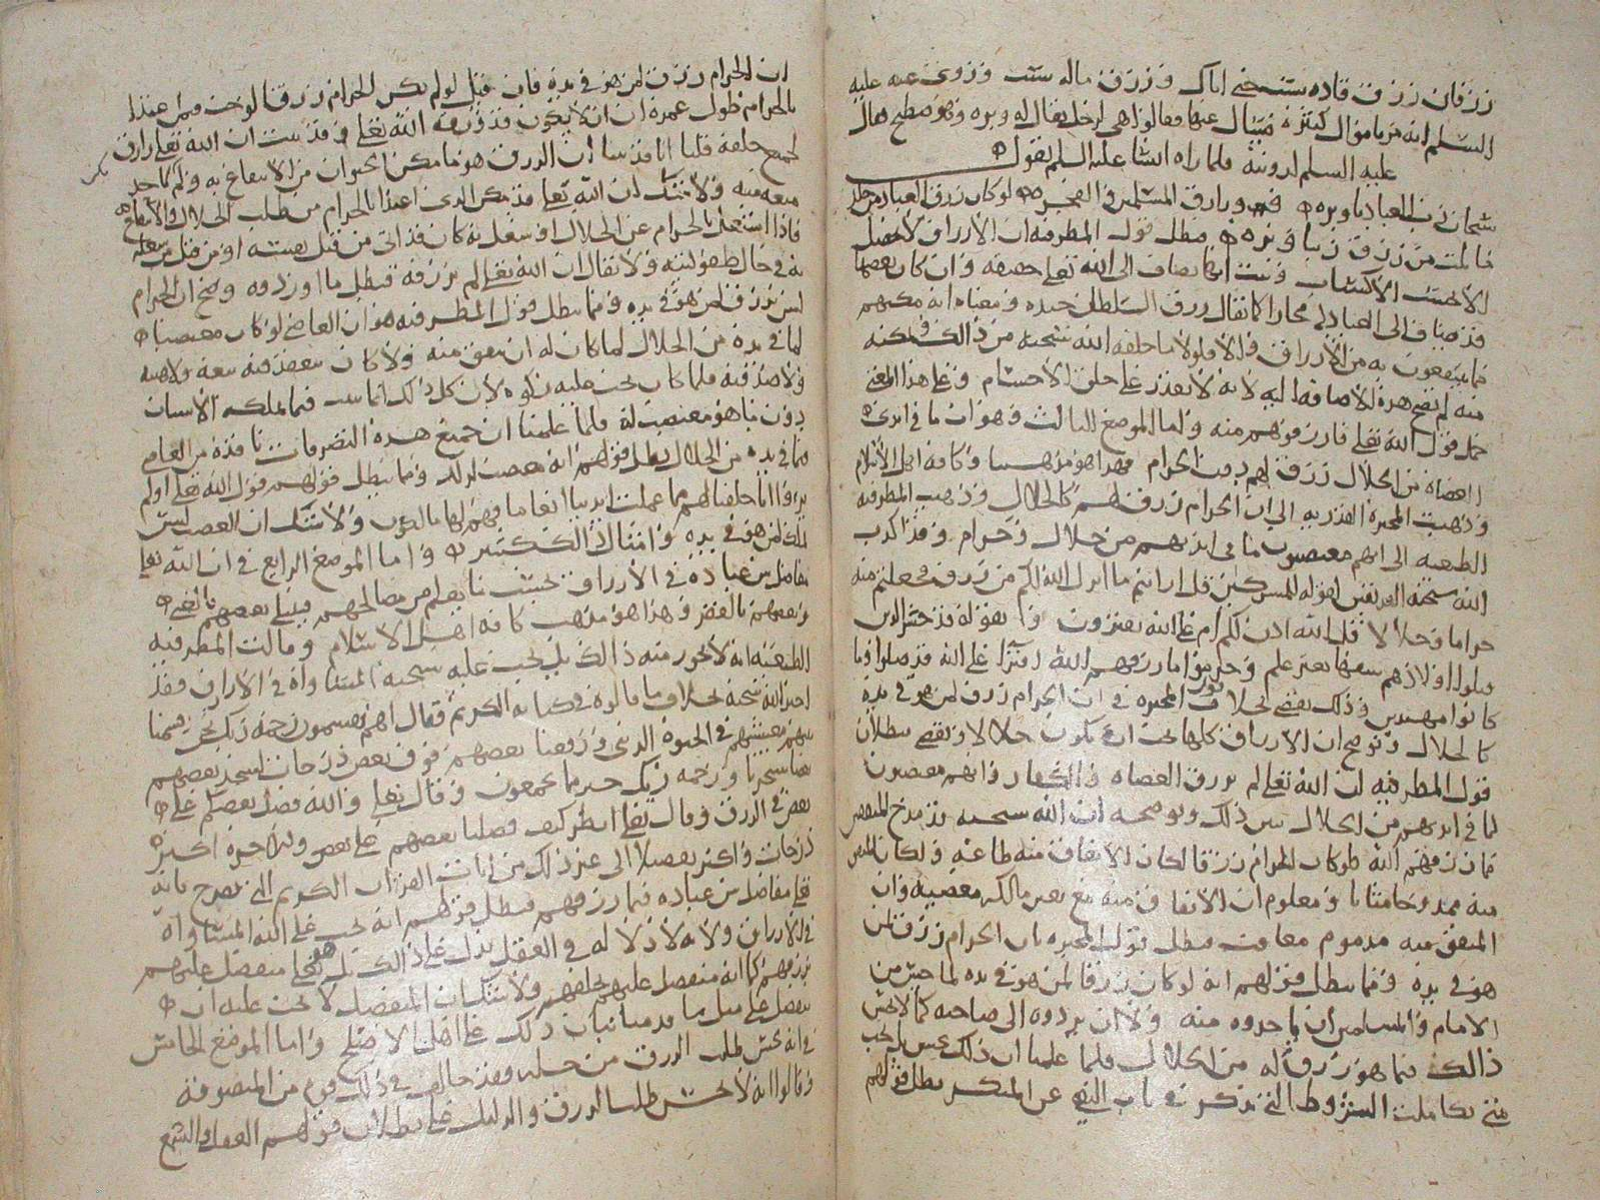 رزقان رزق قاده ستنضي اياك ورزق ماله ست وروي عنه عليه
السلم انه مر باموال كثيرة فسال عنها فقالوا هي لرجل يقال له وبره وهو مصطح فقال
عليه السلم لدونيه فلما راه انشا عليه السلم يقول
سبحان رب العباد يا وبره ورازق المسلمين والفجره لو كان رزق العباد من جلد
ما نلت من رزق ربنا وبره فبطل قول المطرفيه ان الارزاق لا تحصل
الا بحسب الاكتساب وثبت انها تضاف الى الله تعلى حقيقه وان كان بعضها
قد يضاف الى العباد مجازا كما يقال رزق السلطان جنده ومعناه انه مكنهم
مما ينتفعون به من الارزاق والا فلولا ما خلقه الله سبحنه من ذالك ومكنه
منه لم تصح هذه الاضافة اليه لانه لا يقدر على خلق الاجسام وعلى هذا المعنى
حمل قول الله تعلى فارزقوهم منه واما الموضع الثالث وهو ان ما في ايدي
العصاه من الحلال رزق لهم دون الحرام فهذا هو مذهبنا وكافة اهل الاسلام
وذهبت المجبرة القدريه الى ان الحرام رزق لهم كالحلال وذهبت المطرفيه
الطبعيه الى انهم مغتصبون ما في ايديهم من حلال وحرام وقد اكذب
الله سبحنه الفريقين لقوله للمشركين قل ارايتم ما انزل الله لكم من رزق فجعلتم منه
حراما وحلالا قل الله اذن لكم ام على الله تفترون وبقوله قد خسر الذين
قتلوا اولادهم سفها بغير علم وحرموا ما رزقهم الله افترآ على الله قد ضلوا وما
كانوا مهتدين وذلك يقضي بخلاف قول المجبره في ان الحرام رزق لمن هو في يده
كالحلال ويوضح ان الارزاق كلها يجب ان تكون حلالا ويقضي ببطلان
قول المطرفيه ان الله تعلى لم يرزق العصاه والكفار وانهم مغتصبون
لما في ايديهم من الحلال يبين ذلك ويوضحه ان الله سبحنه قد مدح المنفقين
مما رزقهم الله فلو كان الحرام رزقا لكان الانفاق منه طاعه ولكان المنفق
منه ممدوحا مثابا ومعلوم ان الانفاق منه مع تعين مالكه معصيه وان
المنفق منه مذموم معاقب فبطل قول المجبره ان الحرام رزق لمن
هو في يده ومما يبطل قولهم انه لو كان رزقا لمن هو في يده لما حسن من
الامام والمسلمين ان ياخذوه منه ولا ان يردوه الى صاحبه كما لا يحسن
ذالك فيما هو رزق له من الحلال فلما علمنا ان ذلك يحسن بل يجب
متى تكاملت الشروط التي تذكر في باب النهي عن المنكر بطل قولهم
ان الحرام رزق لمن هو في يده فان قيل لو لم يكن الحرام رزقا لوجب فيمن اغتذا
بالحرام طول عمره ان لا يكون قد رزقه الله تعلى وقد ثبت ان الله تعلى رازق
لجميع خلقه قلنا انا قد بينا ان الرزق هو ما مكن الحيوان من الانتفاع به ولم يكن لاحد
منعه منه ولا شك ان الله تعلى قد مكن الذي اغتذا بالحرام من طلب الحلال والانتفاع به
فاذا اشتغل بالحرام عن الحلال او شغل به كان قد اتى من قبل نفسه او من قبل من شغله
به في حال طفوليته ولا يقال ان الله تعلى لم يرزقه فبطل ما اوردوه وصح ان الحرام
ليس برزق لمن هو في يده ومما يبطل قول المطرفيه هو ان العاصي لو كان مغتصبا
لما في يده من الحلال لما كان له ان ينفق منه ولا كان ينعقد فيه بيعه ولا هبته
ولا صدقته فلما كان تجب عليه زكوه لان كل ذلك انما يثبت فيما يملكه الانسان
دون ما هو مغتصب له فلما علمنا ان جميع هذه التصرفات نافذة من العاصي
فيما في يده من الحلال بطل قولهم انه مغتصب لذلك ومما يبطل قولهم قول الله تعلى اولم
يروا انا خلقنا لهم مما عملت ايدينا انعاما فهم لها مالكون ولا شك ان الغصب ليس
بملك لمن هو في يده وامثال ذالك كثير واما الموضع الرابع في ان الله تعلى
فاضل بين عباده في الارزاق بحسب ما يعلم من مصالحهم فيبتلي بعضهم بالغنى
وبعضهم بالفقر وهذا هو مذهب كافة اهل الاسلام وقالت المطرفيه
الطبعيه انه لا يجوز منه ذالك بل يجب عليه سبحنه المساواة في الارزاق وقد
اخبر الله سبحنه بخلاف ما قالوه في كتابه الكريم فقال اهم يقسمون رحمة ربك نحن قسمنا
بينهم معيشتهم في الحيوة الدنيا ورفعنا بعضهم فوق بعض درجات ليتخذ بعضهم
بعضا سخريا ورحمه ربك خير مما يجمعون وقال تعلى والله فضل بعضكم على
بعض في الرزق وقال تعلى انظر كيف فضلنا بعضهم على بعض وللاخرة اكبر
درجات واكبر تفضيلا الى غير ذلك من ايات القران الكريم التي تصرح بانه
تعلى فاضل بين عباده فيما رزقهم فبطل قولهم انه يجب على الله المساواة
في الارزاق ولانه لا دلاله في العقل تدل على ذالك بل هو تعلى متفضل عليهم
برزقهم كما انه متفضل عليهم بخلقهم ولا شك ان المتفضل لا يجب عليه ان
يتفضل على مثل ما قدمنا بيان ذلك على اهل الاصلح واما الموضع الخامس
في انه يحسن طلب الرزق من حله فقد خالف في ذلك قوم من المتصوفة
وقالوا انه لا يحسن طلب الرزق والدليل على بطلان قولهم العقل والسمع